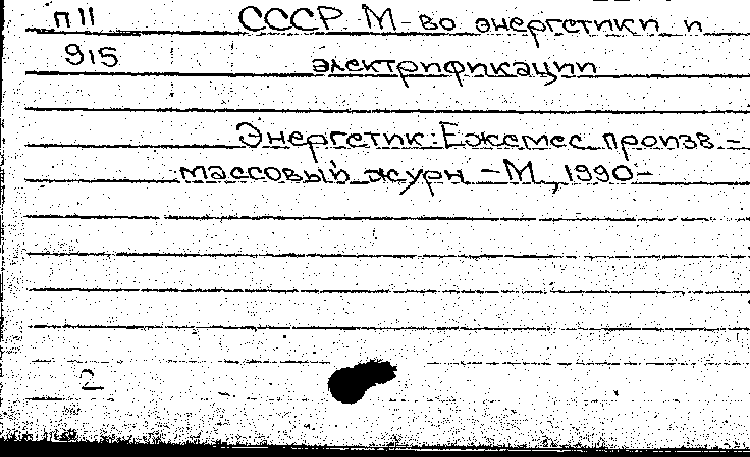 П 11 СССР. М-во энергетики и
915 электрификации
Энергетик: Ежемес. произв.-
массовый журн. - М., 1990-
2